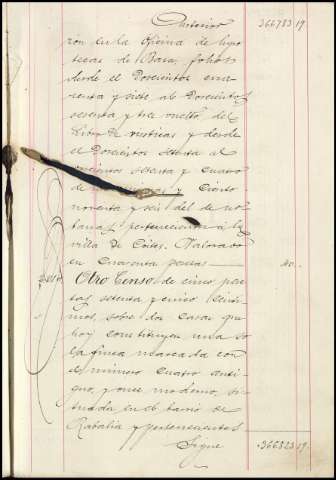 Anterior 366783 19.
ron en la oficina de hipo
tecas de Baza, folios
desde el Doscientos cua
renta y siete al Doscientos
setenta y tres vuelto, del
Libro de rústicas y desde
el Doscientos setenta al
setenta y cuatro
y Ciento
noventa y seis del de ur
banas, pertenecientes á la
villa de Cortes. Valorado
en Cuarenta pesetas 40.
Otro Censo de cinco pese
tas setenta y cinco cénti
mos, sobre dos Casas que
hoy constituyen una so
la finca marcada con
el número cuatro anti
guo, y once moderno, si
tuada en el barrio de
Rabalia y pertenecientes
Sigue 366823 19.